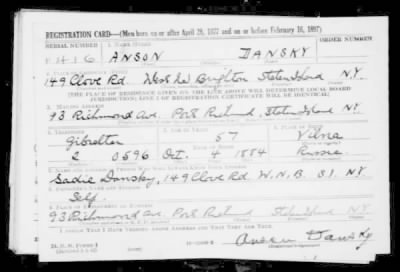 REGISTRATION CARD—(Men born on or after April 28, 1877 and on or before February 16, 1897)
SERIAL NUMBER 1. NAME (Print) ORDER NUMBER
ANSON DANSKY
149 Clove Rd. West New Brighton Staten Island N.Y.
[THE PLACE OF RESIDENCE GIVEN ON THE LINE ABOVE WILL DETERMINE LOCAL BOARD
JURISDICTION; LINE 2 OF REGISTRATION CERTIFICATE WILL BE IDENTICAL]
3. MAILING ADDRESS
93 Richmond Ave. Port Richmond, Staten Island N.Y.
4. TELEPHONE
Gibralter 57 Vilna
2 0596 Oct. 4 1884 Russia
Sadie Dansky, 149 Clove Rd. W.N.B. S.I. N.Y.
Self
93 Richmond Ave. Port Richmond Staten Island N.Y.
I AFFIRM THAT I HAVE VERIFIED ABOVE ANSWERS AND THAT THEY ARE TRUE.
Anson Dansky